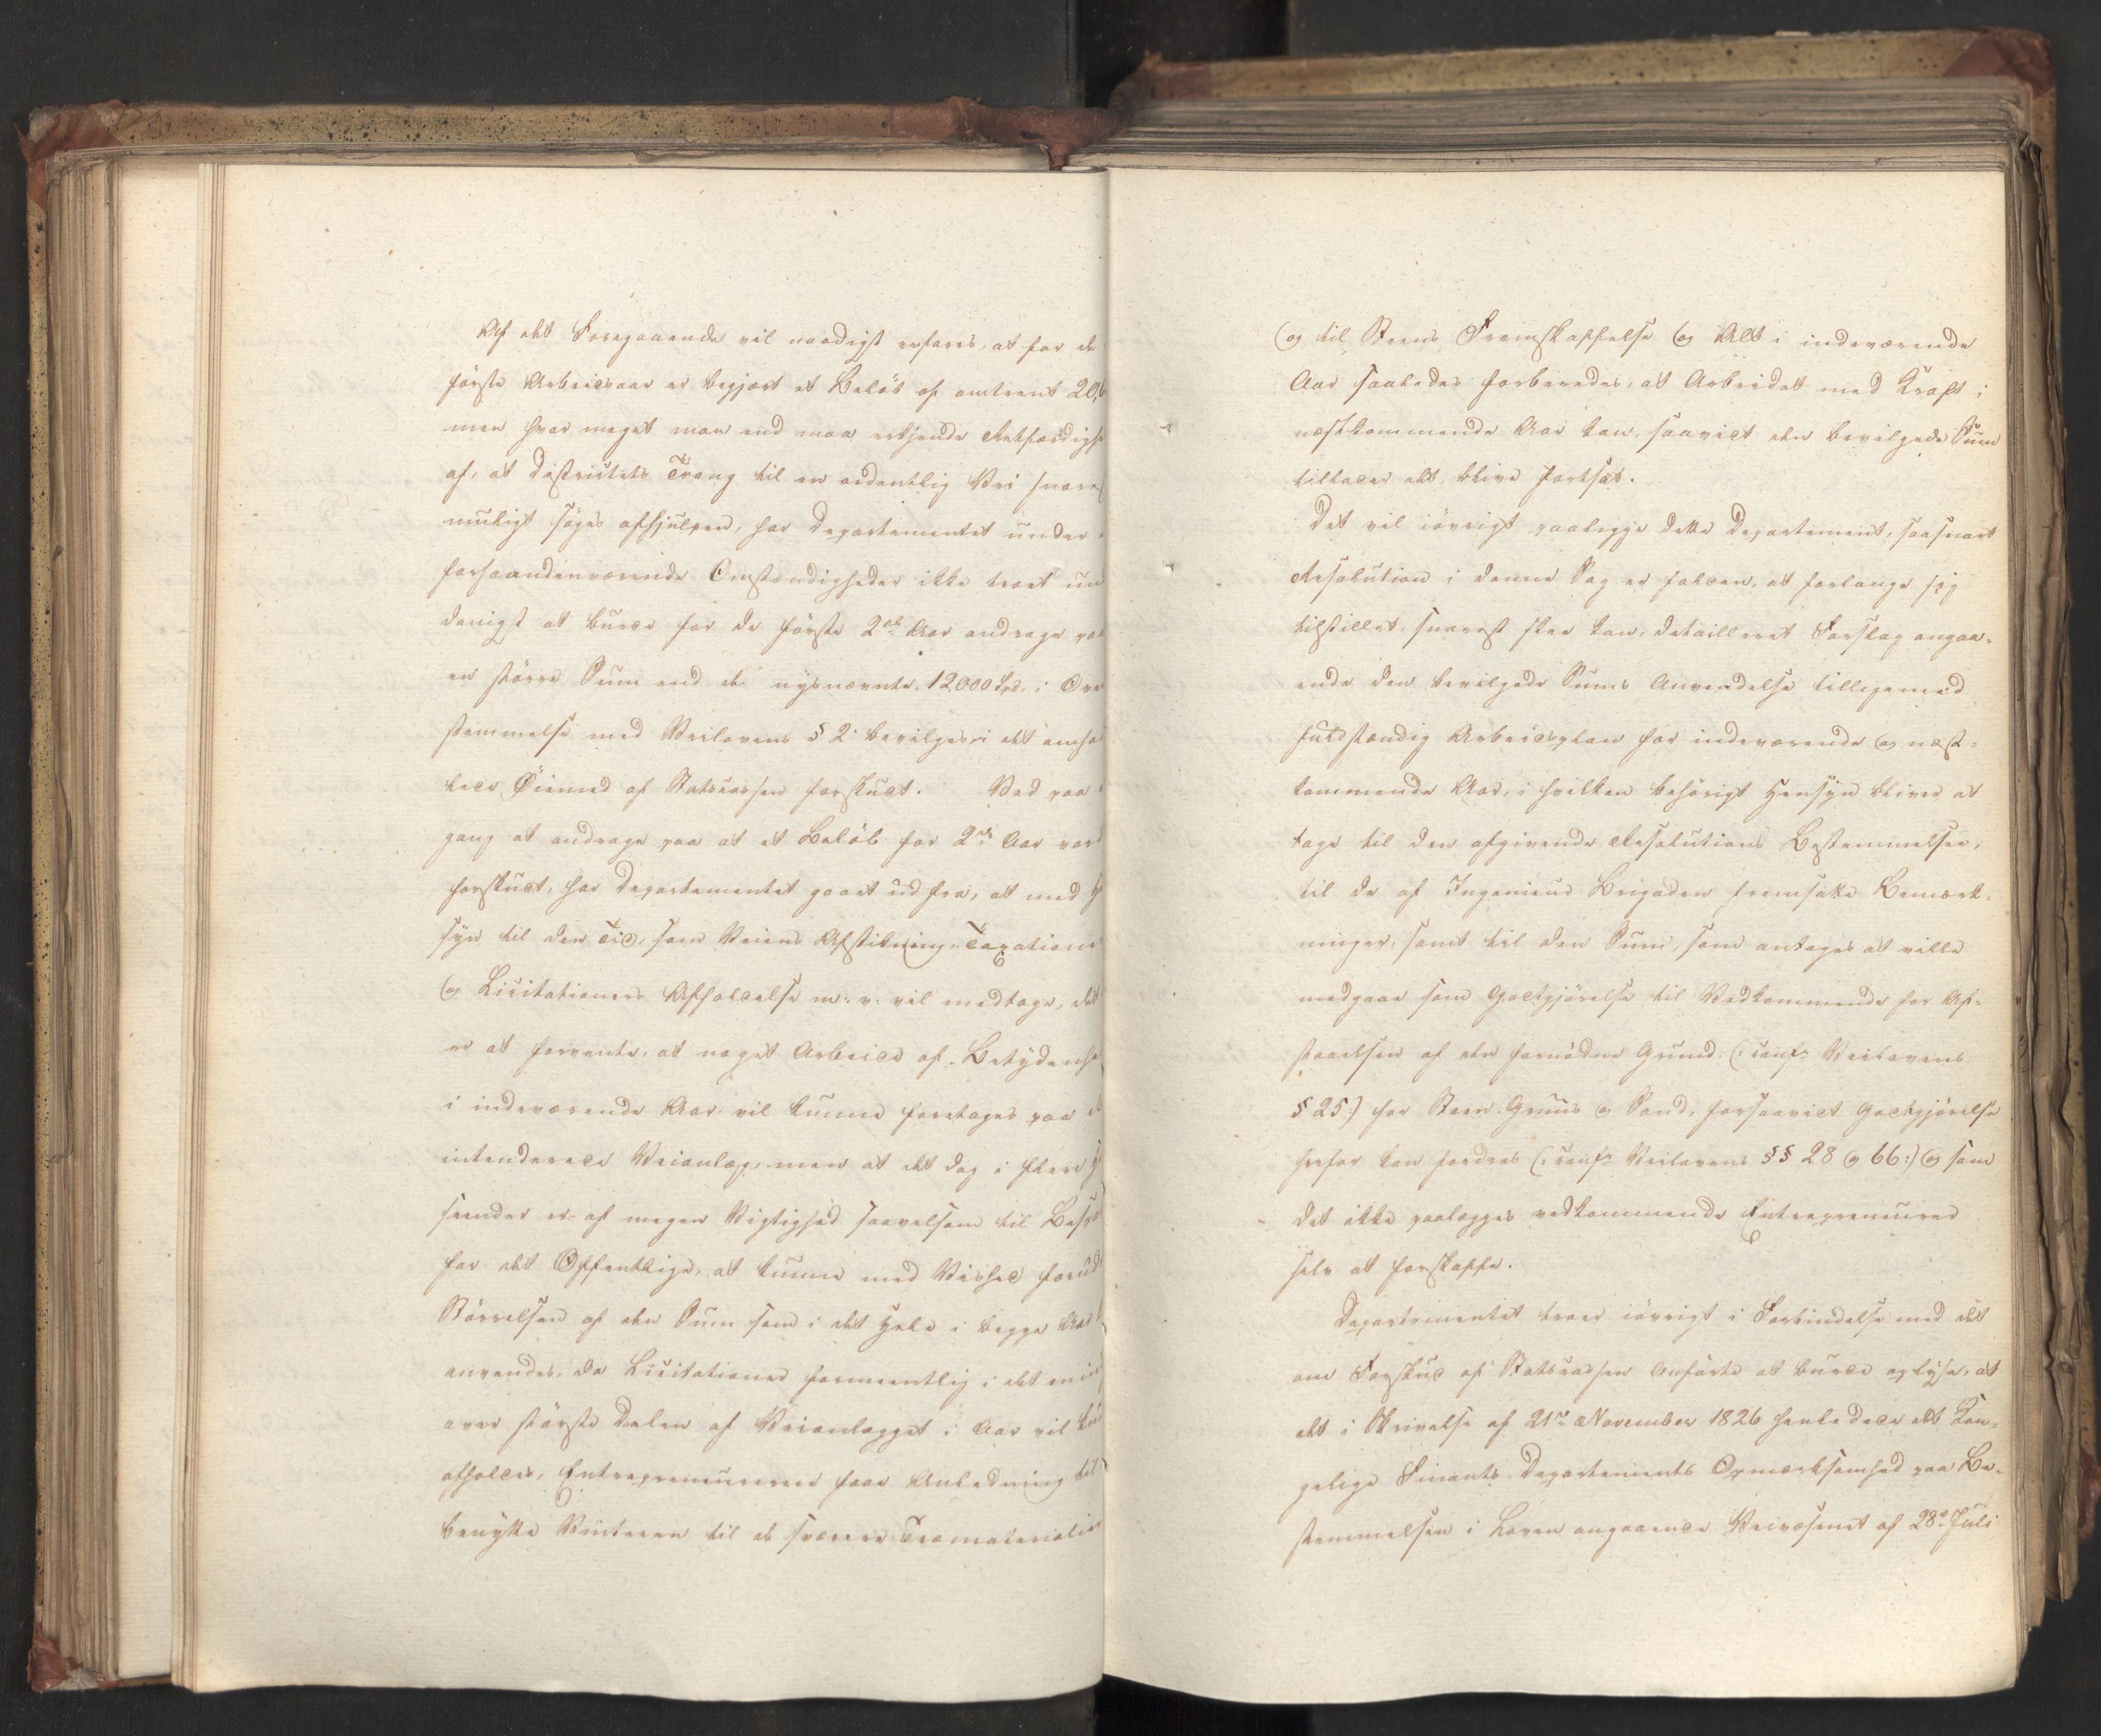 Af det Foregaaende vil naadigst erfares, at for de
første Arbeidsaar er begjært et Beløb af omtrent 20,
men hvor meget man end maa erkjende Retfærdigh
af, at Districtets Trang til en ordentlig Vei snares
muligt søges afhjulpen, har Departementet under
forhaandenværende Omstændigheder ikke troet un
danigst at burde for de første 2de Aar andrage paa
en større Sum end de nysnævnte 12000 Spd. i Over
stemmelse med Veilovens § 2 bevilges i det omha
lede Øiemed af Statscassen forskudt. Ved paa
gang at andrage paa at et Beløb for 2de Aar vor
forskudt, har Departementet gaaet ud fra, at med H
syn til den Tid, som Veiens Afstikning, Taxations
og Licitationers Afholdelse m: v: vil medtage, det
er at forvente, at noget Arbeide af Betydenh
i indeværende Aar vil kunne foretages paa d
intenderede Veianlæg, men at det dog i flere H
seender er af megen Vigtighed saavelsom til Bespa
for det Offentlige, at kunne med Vished forud
Størrelsen af den Sum som i det Hele i begge Aar
anvendes, da Licitationer formeentlig i det min
over største Delen af Veianlægget i Aar vil kun
afholdes, Entrepreneurerne faae Anledning til
benytte Vinteren til de sværere Træmaterialie
og til Steens Fremskaffelse og Alt i indeværende
Aar saaledes forberedes, at Arbeidet med Kraft i
næstkommende Aar kan, saavidt den bevilgede Sum
tillader det, blive fortsat.
Det vil iøvrigt paaligge dette Departement, saasnart
Resolution i denne Sag er falden, at forlange sig
tilstillet, snarest skee kan, detailleret Forslag angaa-
ende den bevilgede Sums Anvendelse tilligemed
fuldstændig Arbeidsplan for indeværende og næst-
kommende Aar, i hvilken behørigt Hensyn bliver at
tage til den afgivende Resolutions Bestemmelser,
til de af Ingenieur Brigaden fremsatte Bemærk-
ninger, samt til den Sum, som antages at ville
medgaae som Godtgjørelse til Vedkommende for Af-
staaelsen af den fornødne Grund (: conf: Veilovens
§ 25:) for Steen, Gruus og Sand, forsaavidt Godtgjørelse
herfor kan fordres (: conf: Veilovens §§ 28 og 66:) og som
det ikke paalægges vedkommende Entrepreneurer
selv at forskaffe.
Departementet troer iøvrigt i Forbindelse med det
om Forskud af Statscassen Anførte at burde oplyse, at
det i Skrivelse af 21de November 1826 henledede det Kon-
gelige Finants Departements Opmærksomhed paa Be-
stemmelsen i Loven angaaende Veivæsenet af 28de Juli